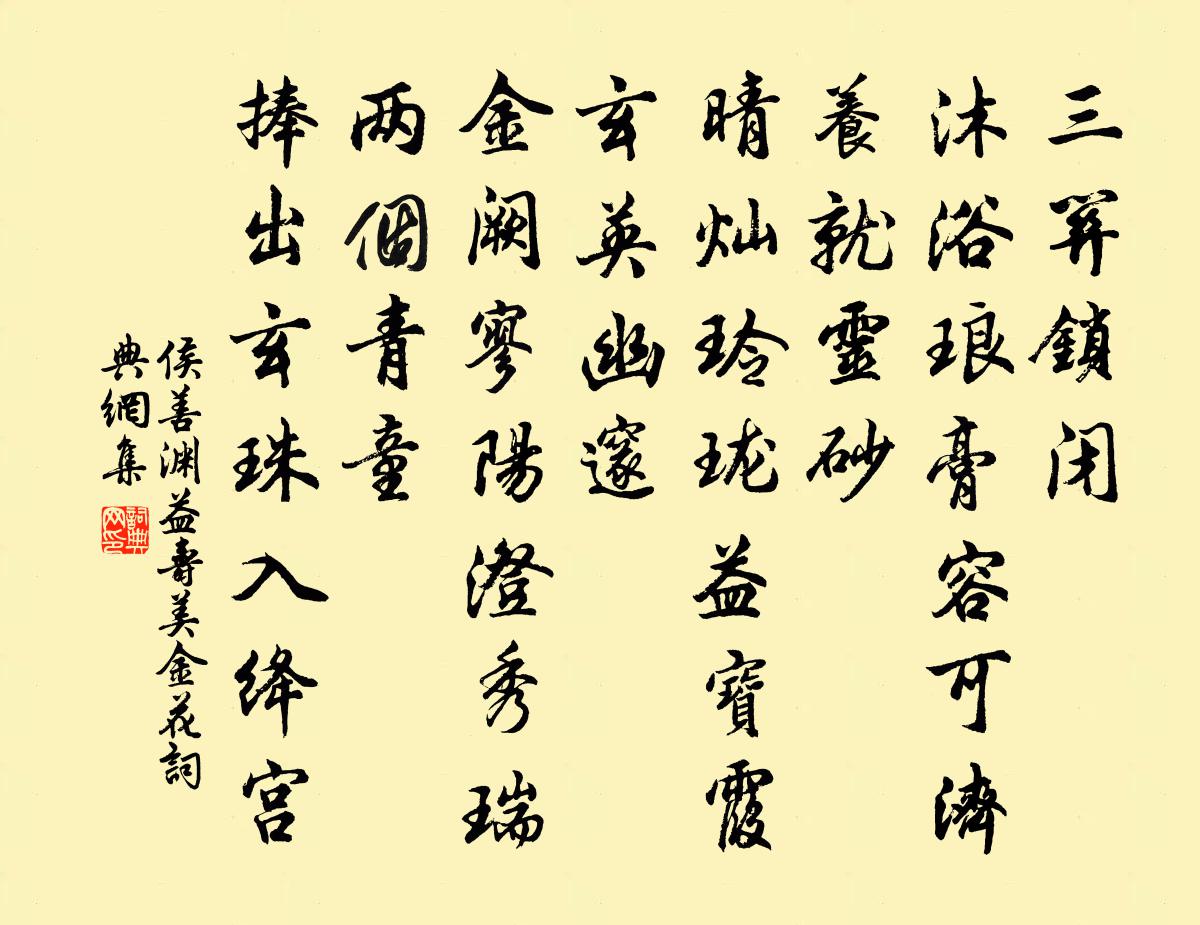 三關鎖闭
沐浴琅膏容可濟
養就靈砂
晴灿玲珑益寶霞
玄英幽邃
金阙寥陽澄秀瑞
两個青童
捧出玄珠入绛宫
侯善渊益壽美金花詞
典網集
詞典网印